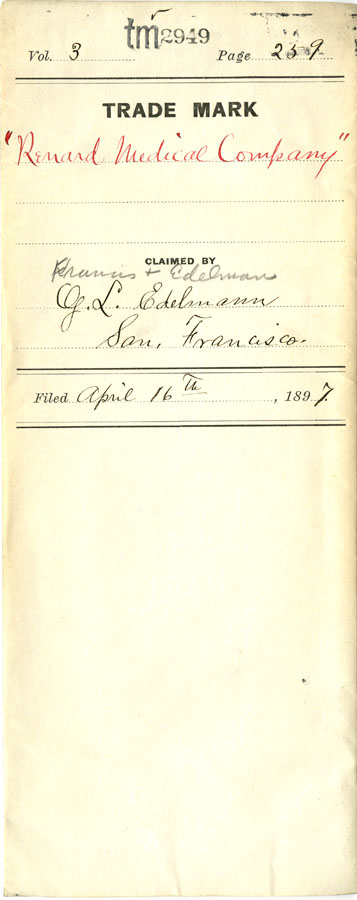 tm2949
Vol. 3 Page 259
TRADE MARK
"Renard Medical Company"
CLAIMED BY
+ Edelman
G. L. Edelmann
San, Francisco.
Filed April 16th, 1897.